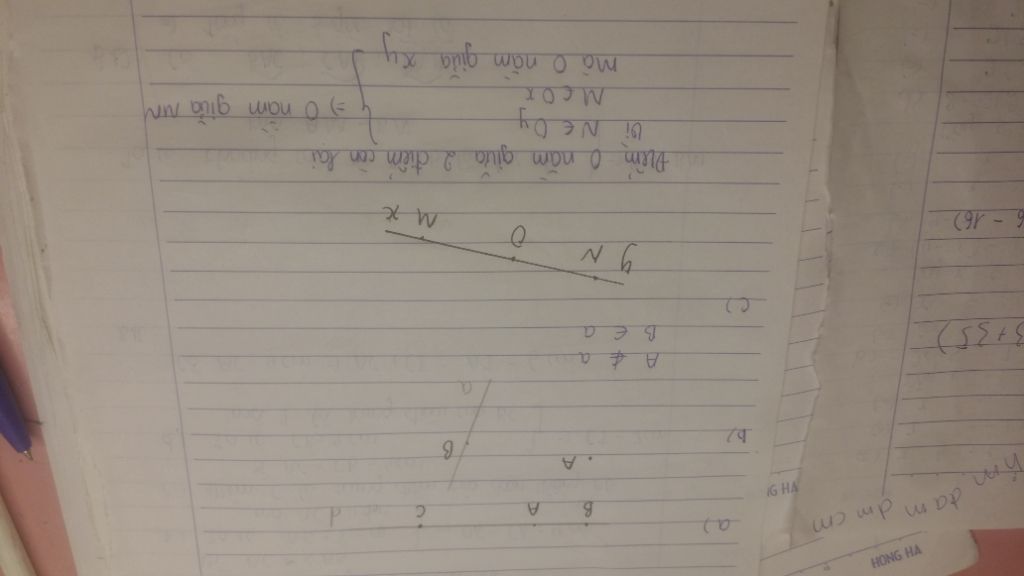 a) B A C d
b) . A B
a
A ∉ a
B ∈ a
c)
y N O M x
Điểm O nằm giữa 2 điểm còn lại
Vì N ∈ Oy
M ∈ Ox
Mà O nằm giữa xy
=> O nằm giữa MN
6 - 16)
3 + 35)
dam dm cm
HONG HA
IG HA